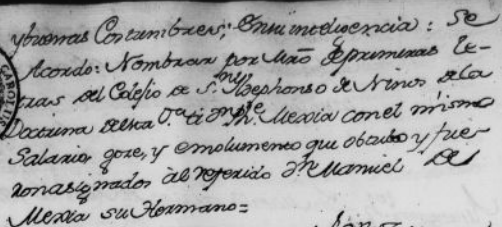 y buenas Costumbres; En su inteligencia: Se
Acordo: Nombrar por Mro de primeras le-
tras del Colejio de Sn Yldephonso de Niños de la
Doctrina desta Va a Dn Ph. Mexia con el mismo
Salario, goze, y emolumento que obtubo y fue
ron asignados al referido Dn Manuel de
Mexia su Hermano=